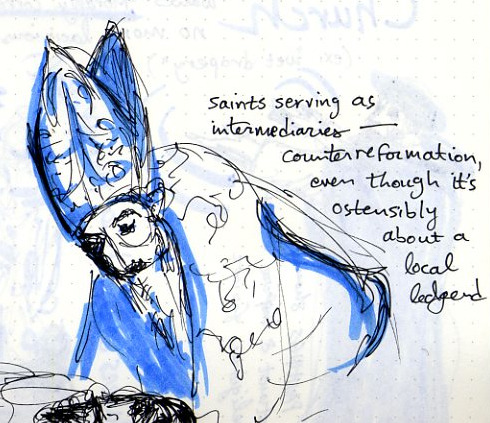 saints serving as
intermediaries —
counterreformation,
even though it's
ostensibly
about a
local
ledgend